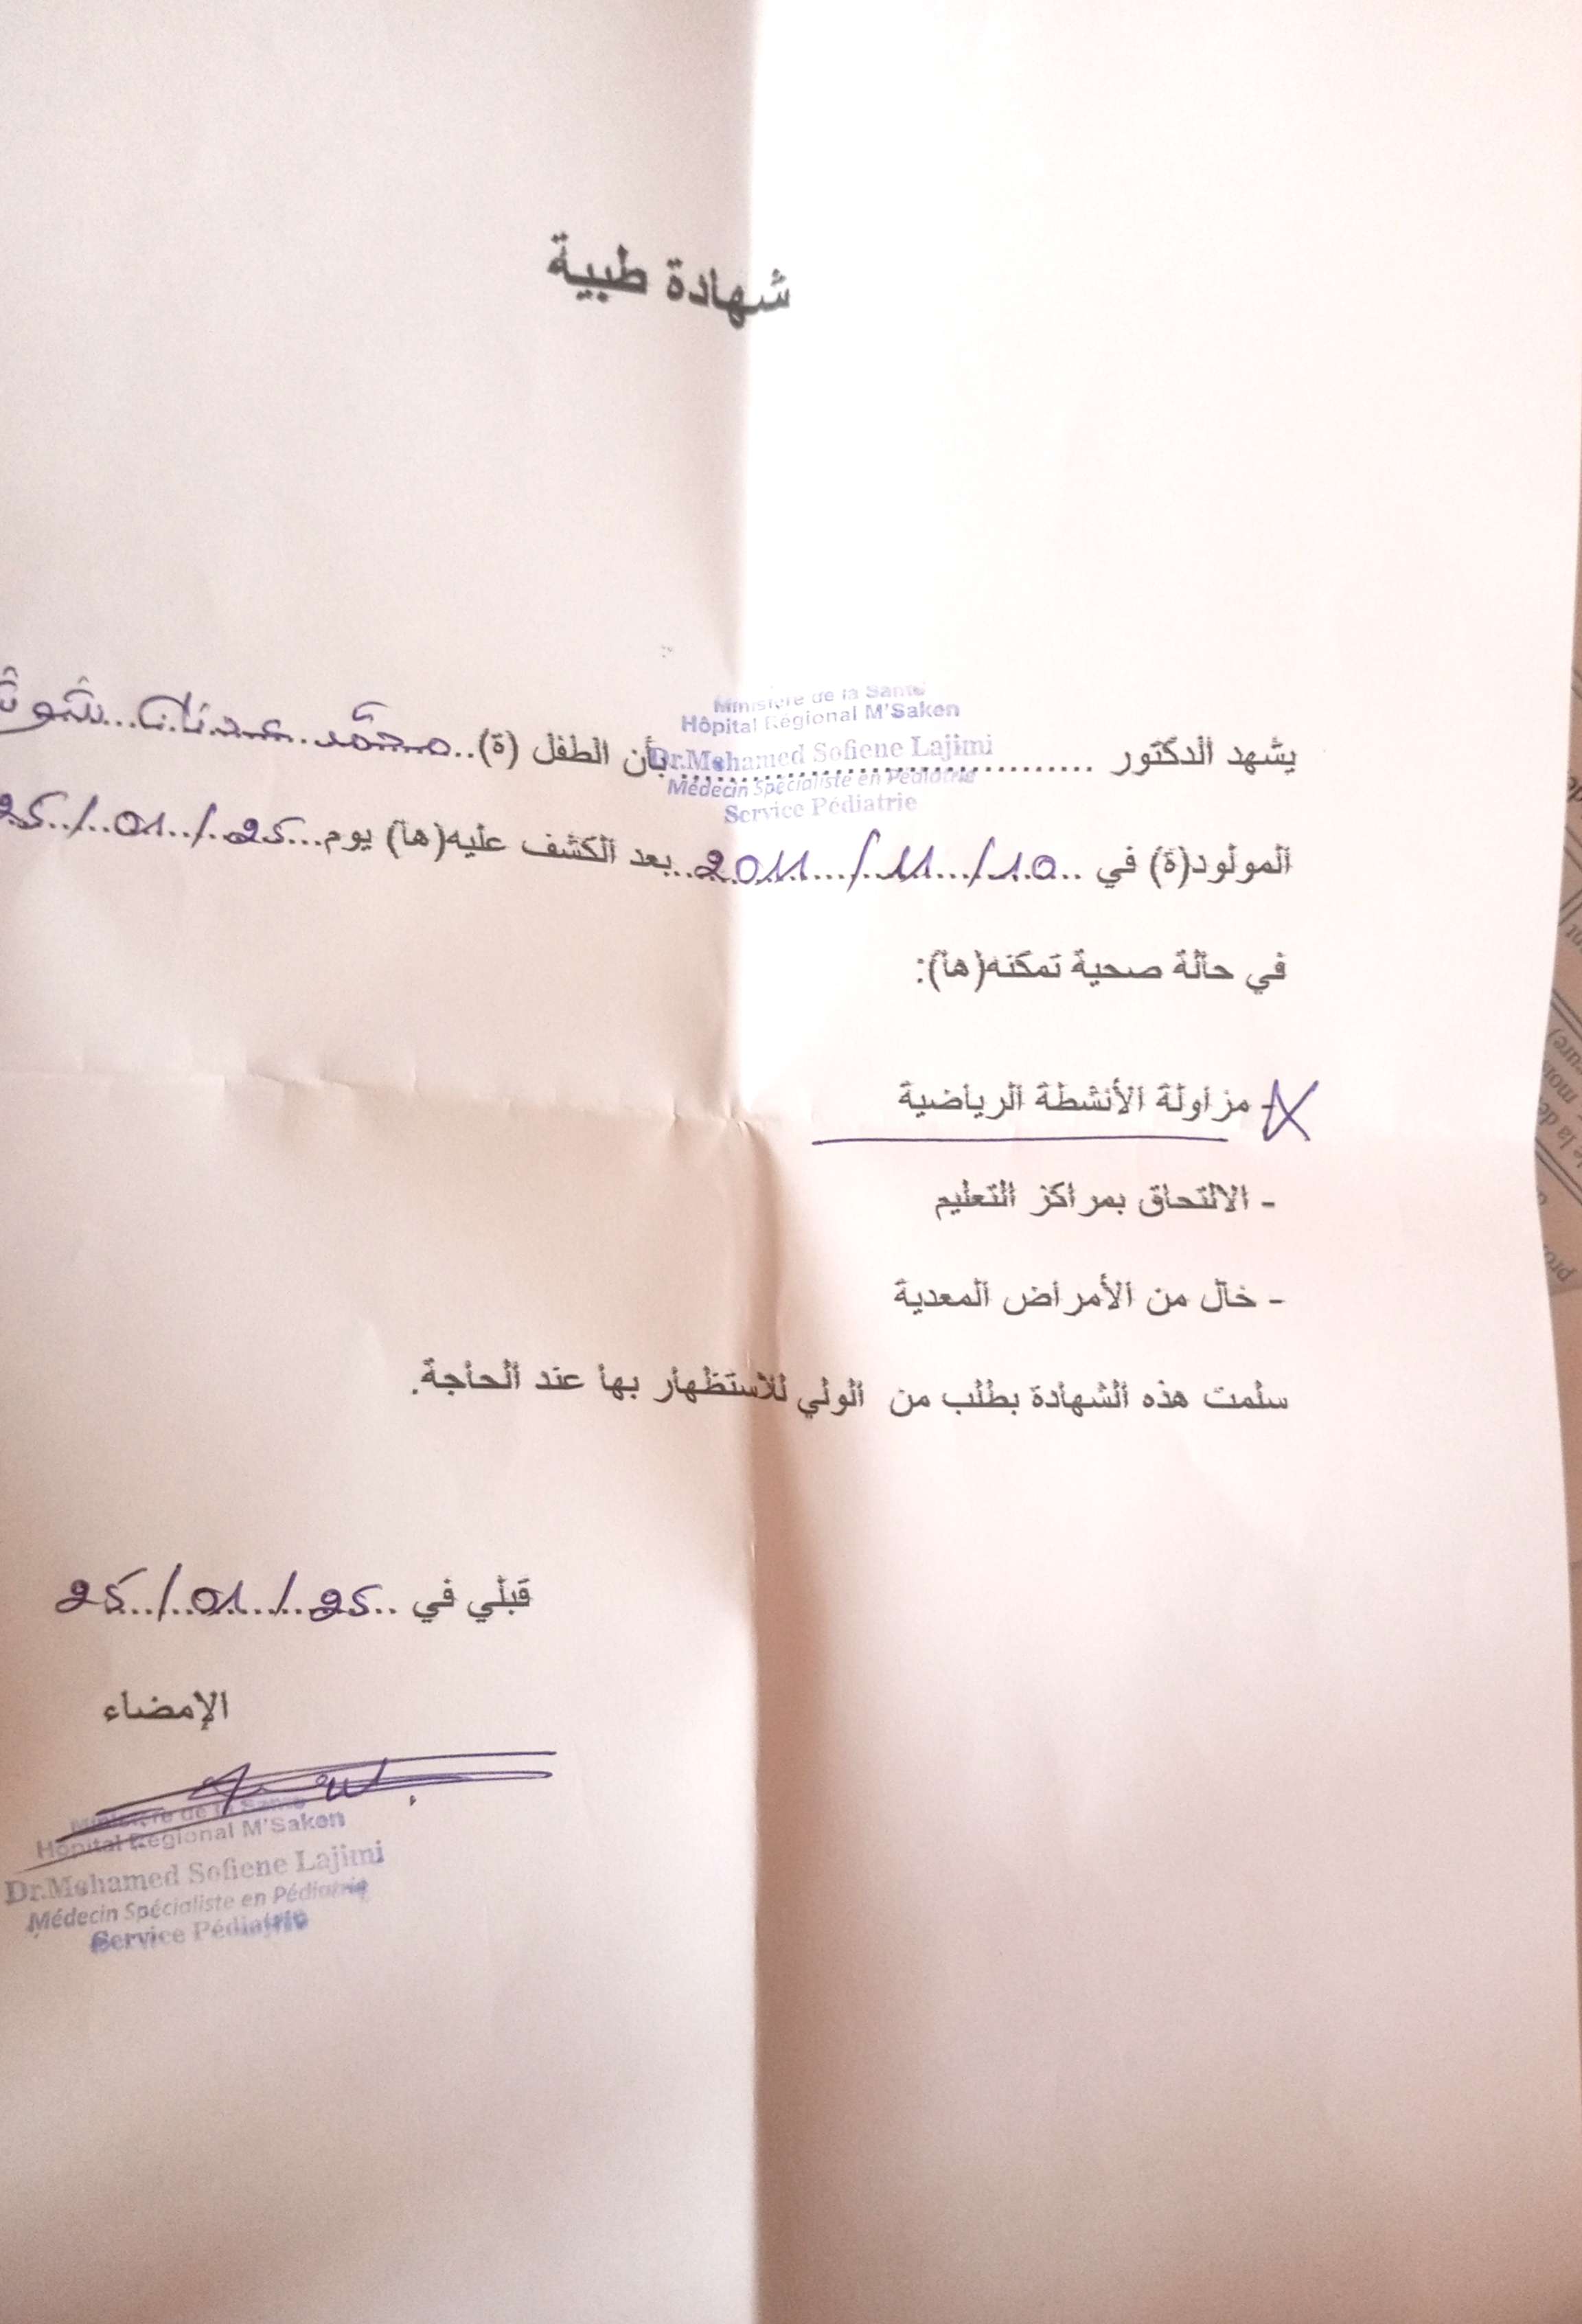 شهادة طبية
Ministère de la Santé
Hôpital Régional M'Saken
Dr.Mohamed Sofiene Lajimi
Médecin Spécialiste en Pédiatrie
Service Pédiatrie
يشهد الدكتور .............................. بأن الطفل (ة)..محمد عدنان
المولود(ة) في ..10./...11.../...2011...بعد الكشف عليه(ها) يوم...25../..01../..25
في حالة صحية تمكنه(ها):
X- مزاولة الأنشطة الرياضية
- الالتحاق بمراكز التعليم
- خال من الأمراض المعدية
سلمت هذه الشهادة بطلب من الولي للاستظهار بها عند الحاجة.
قبلي في ..25../..01../..25
الإمضاء
Ministère de la Santé
Hôpital Régional M'Saken
Dr.Mohamed Sofiene Lajimi
Médecin Spécialiste en Pédiatrie
Service Pédiatrie